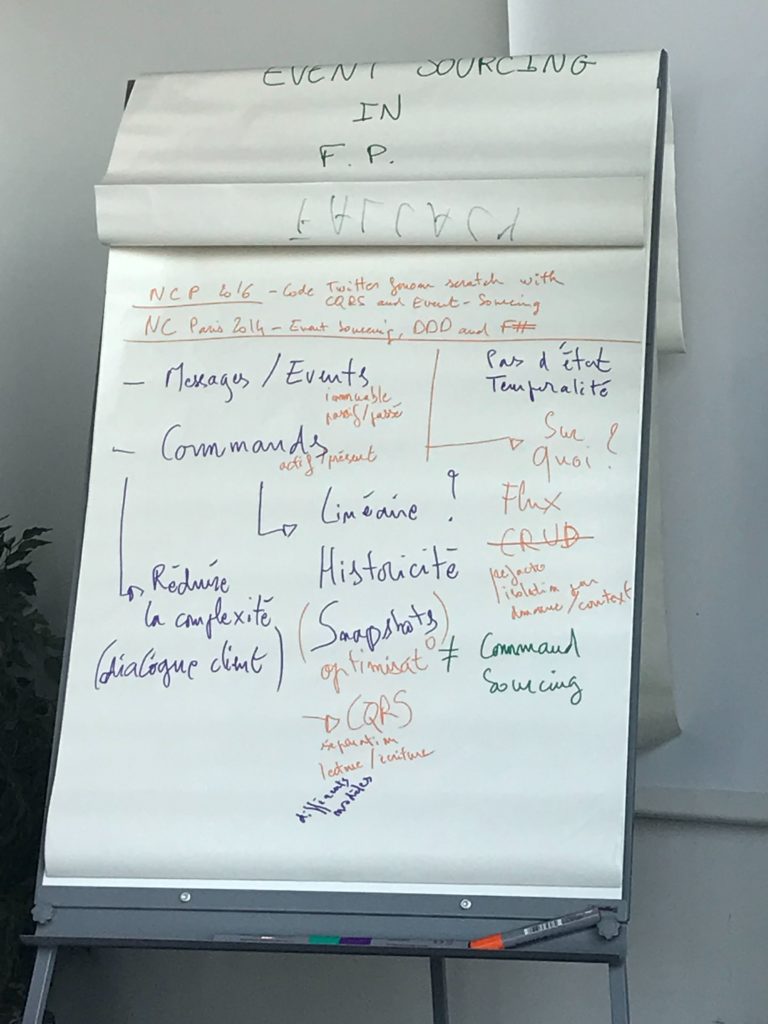 EVENT SOURCING
IN
F. P.
NCP 2016 - Code Twitter from scratch with
CQRS and Event-Sourcing
NC Paris 2014 - Event Sourcing, DDD and F#
- Messages / Events
immuable
passif/passé
- Commands
actif/présent
Réduire
la complexité
(dialogue client)
Linéaire ?
Historicité
(Snapshots)
optimisat°
→ CQRS
séparation
lecture/écriture
différents
modèles
Pas d'état
Temporalité
Sur
quoi ?
Flux
CRUD
refacto
isolation par
domaine/context
≠ Command
Sourcing